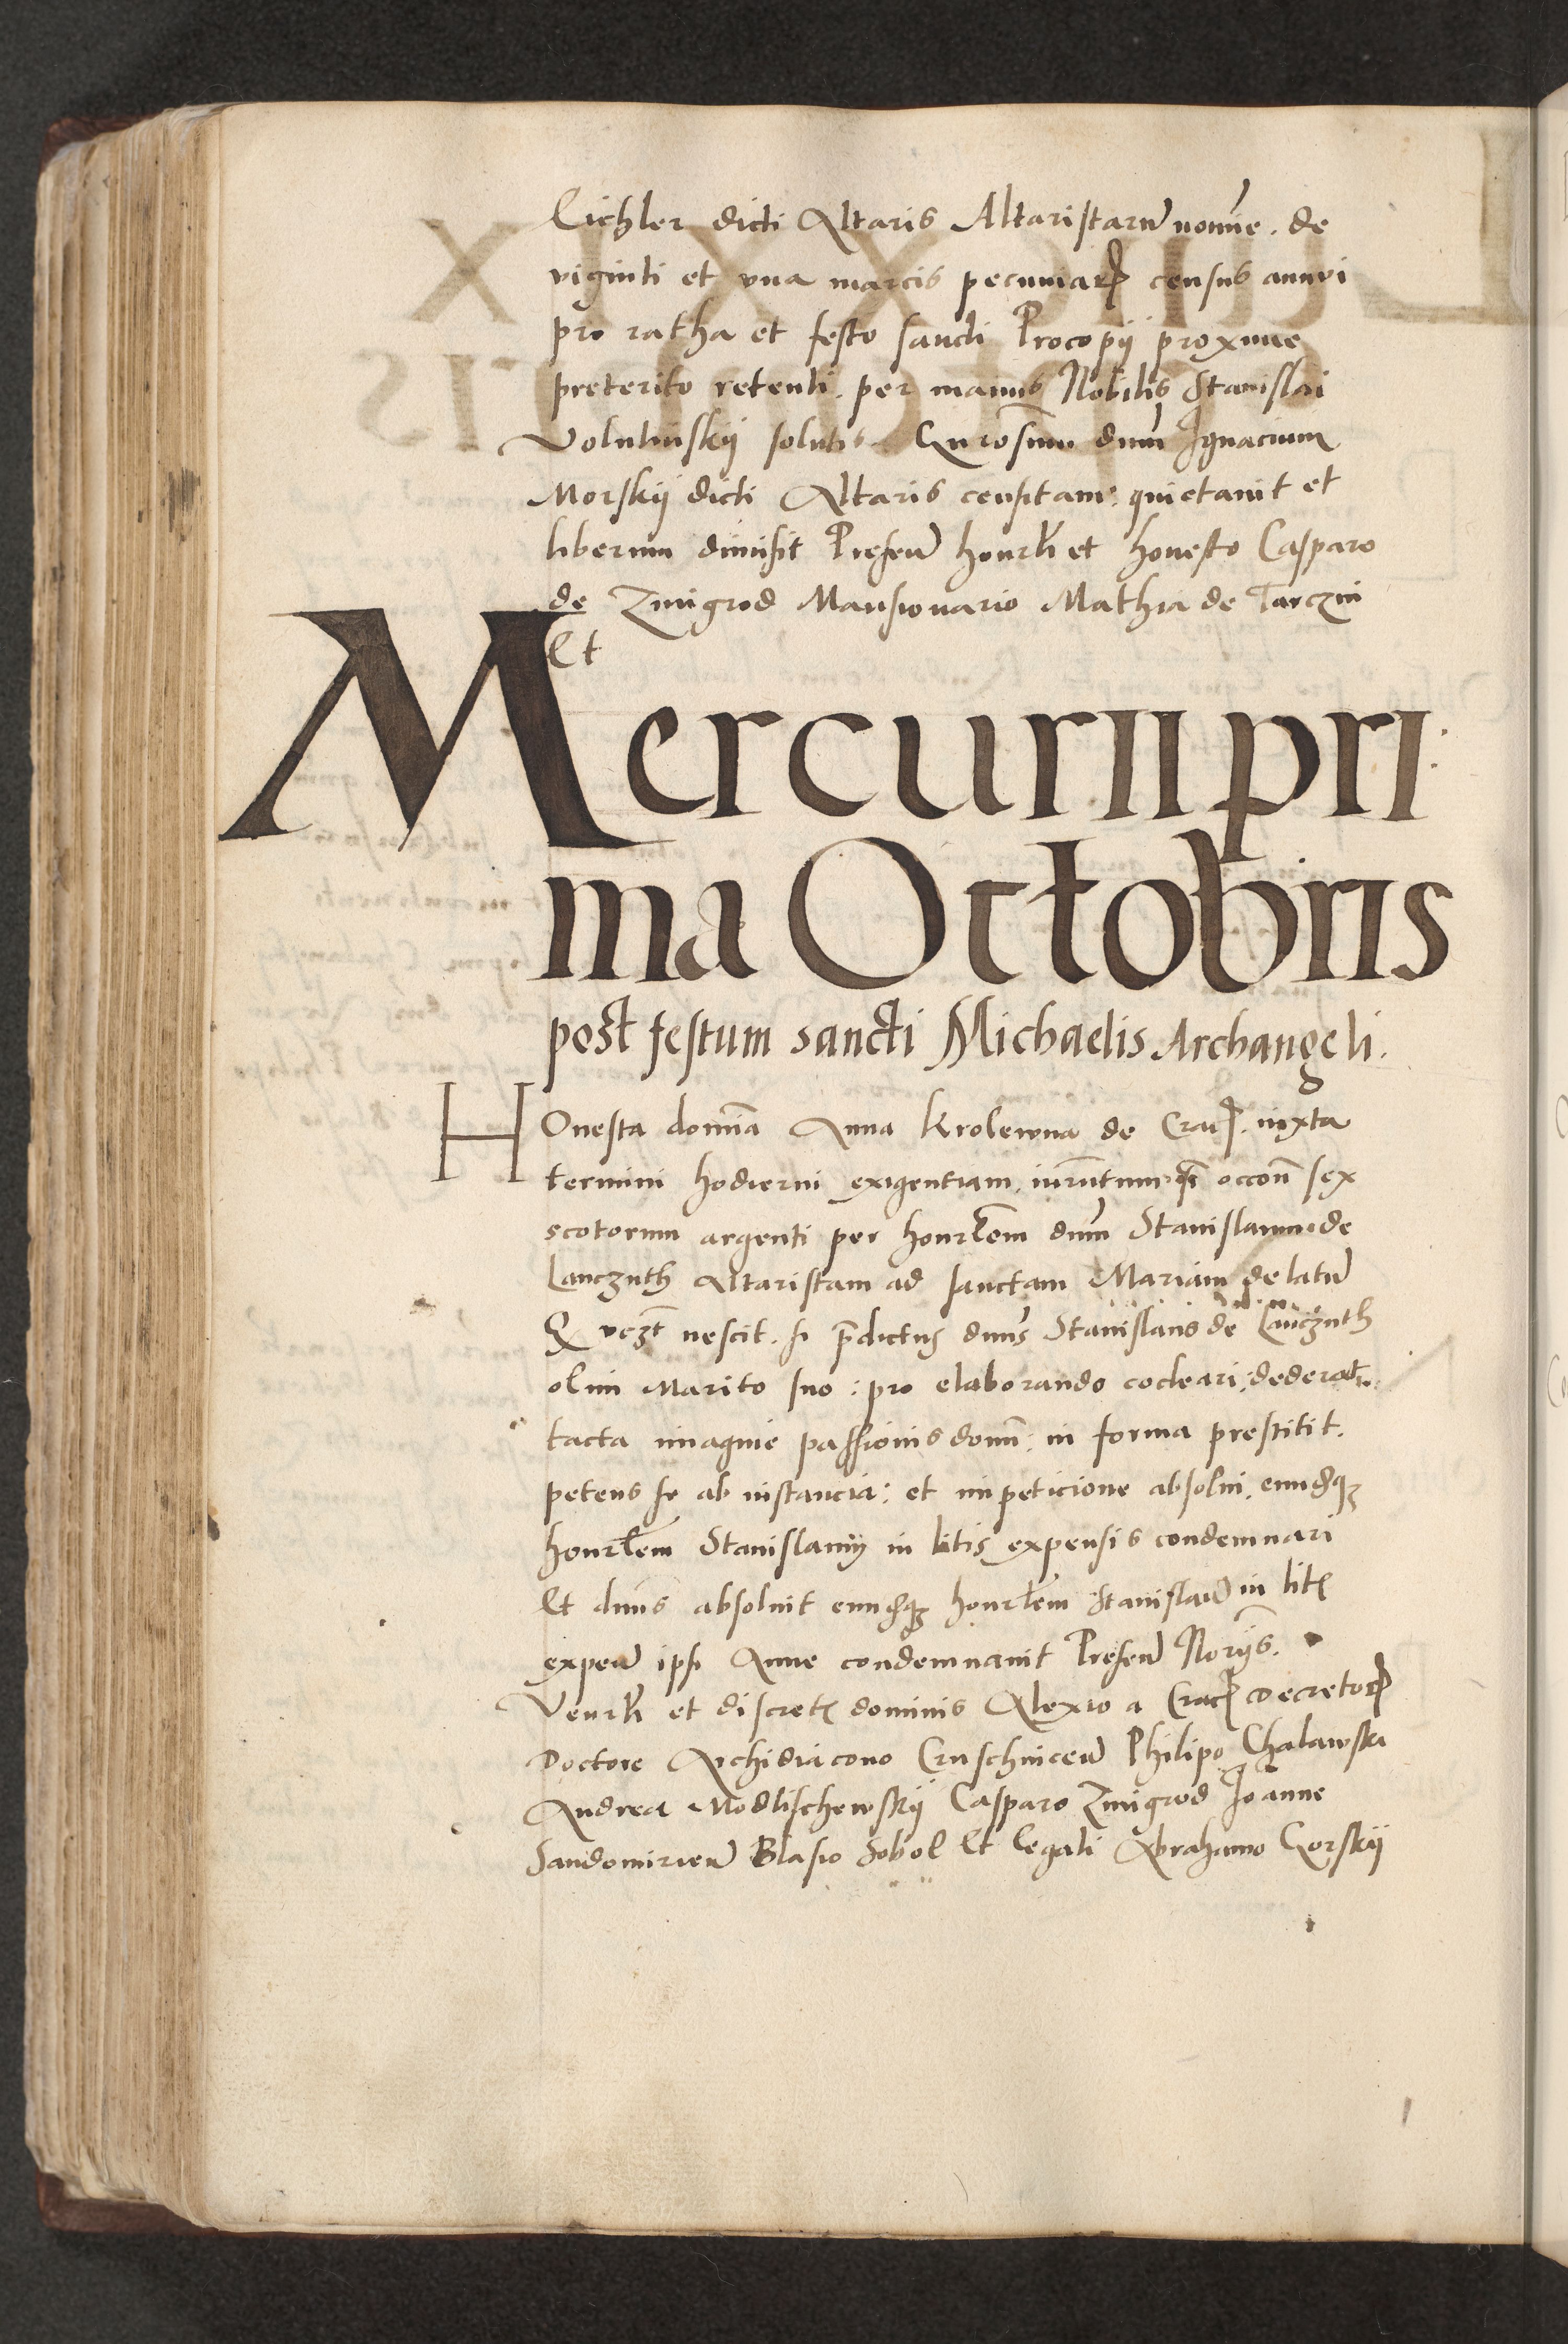 Eichler dicti Altaris Altaristarū nomīe. de
viginti et vna marcis pecuniarꝝ census annui
pro ratha et festo sancti Procopij proxime
preterito retenti. per manus Nobilis Stanislai
solutis. Gn̄rosum dnm̄ Ignacium
Morskij dicti Altaris censitam. quietauit et
liberum dimisit Presen̄ honrli et honesto Casparo
de Zmigrod Mansionario Mathia de Tarczin
Et
Mercurii pri
ma Octobris
post festum sancti Michaelis Archangeli.
HOnesta domīa Anna Krolewna de Cracꝫ. iuxta
termini hodierni exigentiam. occoīe sex
scotorum argenti per honrlem dnm̄ Stanislaum de
Lanczuth Altaristam ad sanctam Mariam delatū
Q vcꝫt nescit. si p̄dictus dnūs Stanislaus de Lanczuth
olim Marito suo: pro elaborando cocleari: dederat
tacta imagine passionis domī: in forma prestitit.
petens se ab instancia: et impeticione absolui. eundqꝫ
honrlem Stanislaum in litis expensis condemnari
Et dnūs absoluit eundqꝫ honrlem Stanislaū in litꝭ
expen̄ ipsi Anne condemnauit Presen̄ Norijs.
Venrli et discretꝭ dominis Alexio a Cracꝫ Decretoꝝ
Doctore Archidiacono Cruschuicen̄ Philipo Chalawski
Andrea Modlischewskij Casparo Zmigrod Joanne
Sandomirien̄ Blasio Sobol Et Legali Abrahamo Gorskij